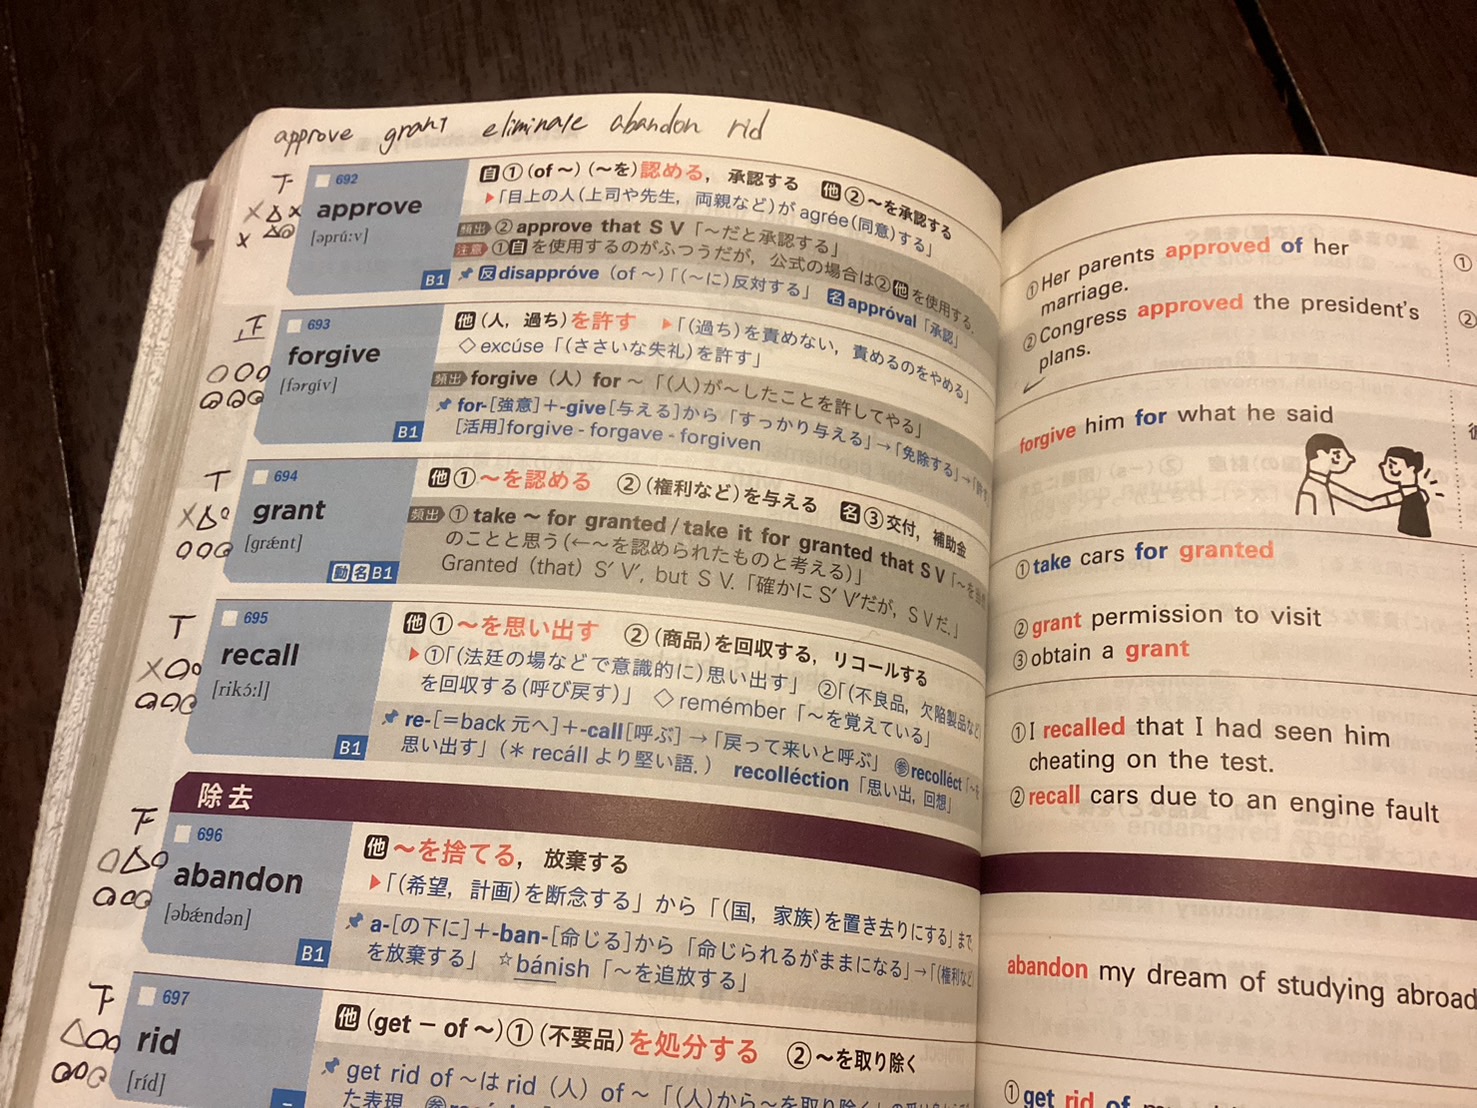 approve grant eliminate abandon rid
692
approve
[əprúːv]
B1
自①(of ～)(～を)認める，承認する 他②～を承認する
▶「目上の人(上司や先生，両親など)が agrée(同意)する」
頻出 ② approve that S V「～だと承認する」
注意 ①自を使用するのがふつうだが，公式の場合は②他を使用する．
反 disappróve (of ～)「(～に)反対する」 名 appróval「承認」
693
forgive
[fərgív]
B1
他(人，過ち)を許す ▶「(過ち)を責めない，責めるのをやめる」
◇ excúse「(ささいな失礼)を許す」
頻出 forgive (人) for ～「(人)が～したことを許してやる」
for-[強意]＋-give[与える]から「すっかり与える」→「免除する」→
[活用]forgive - forgave - forgiven
694
grant
[grǽnt]
動 名 B1
他①～を認める ②(権利など)を与える 名③交付，補助金
頻出 ① take ～ for granted / take it for granted that S V「～を
のことと思う(←～を認められたものと考える)」
Granted (that) S′ V′, but S V.「確かに S′ V′だが，S V だ．」
695
recall
[rikɔ́ːl]
B1
他①～を思い出す ②(商品)を回収する，リコールする
▶①「(法廷の場などで意識的に)思い出す」 ②「(不良品，欠陥製品など)
を回収する(呼び戻す)」 ◇ remémber「～を覚えている」
re-[＝back 元へ]＋-call[呼ぶ]→「戻って来いと呼ぶ」 参 recolléct「～を
思い出す」(＊ recáll より堅い語．) recolléction「思い出，回想」
除去
696
abandon
[əbǽndən]
B1
他 ～を捨てる，放棄する
▶「(希望，計画)を断念する」から「(国，家族)を置き去りにする」まで
a-[の下に]＋-ban-[命じる]から「命じられるがままになる」→「(権利など)
を放棄する」 ☆bánish「～を追放する」
697
rid
[ríd]
他(get － of ～)①(不要品)を処分する ②～を取り除く
get rid of ～は rid (人) of ～「(人)から～を取り除く」
た表現．
①Her parents approved of her
marriage.
②Congress approved the president's
plans.
forgive him for what he said
①take cars for granted
②grant permission to visit
③obtain a grant
①I recalled that I had seen him
cheating on the test.
②recall cars due to an engine fault
abandon my dream of studying abroad
①get rid of
①
②